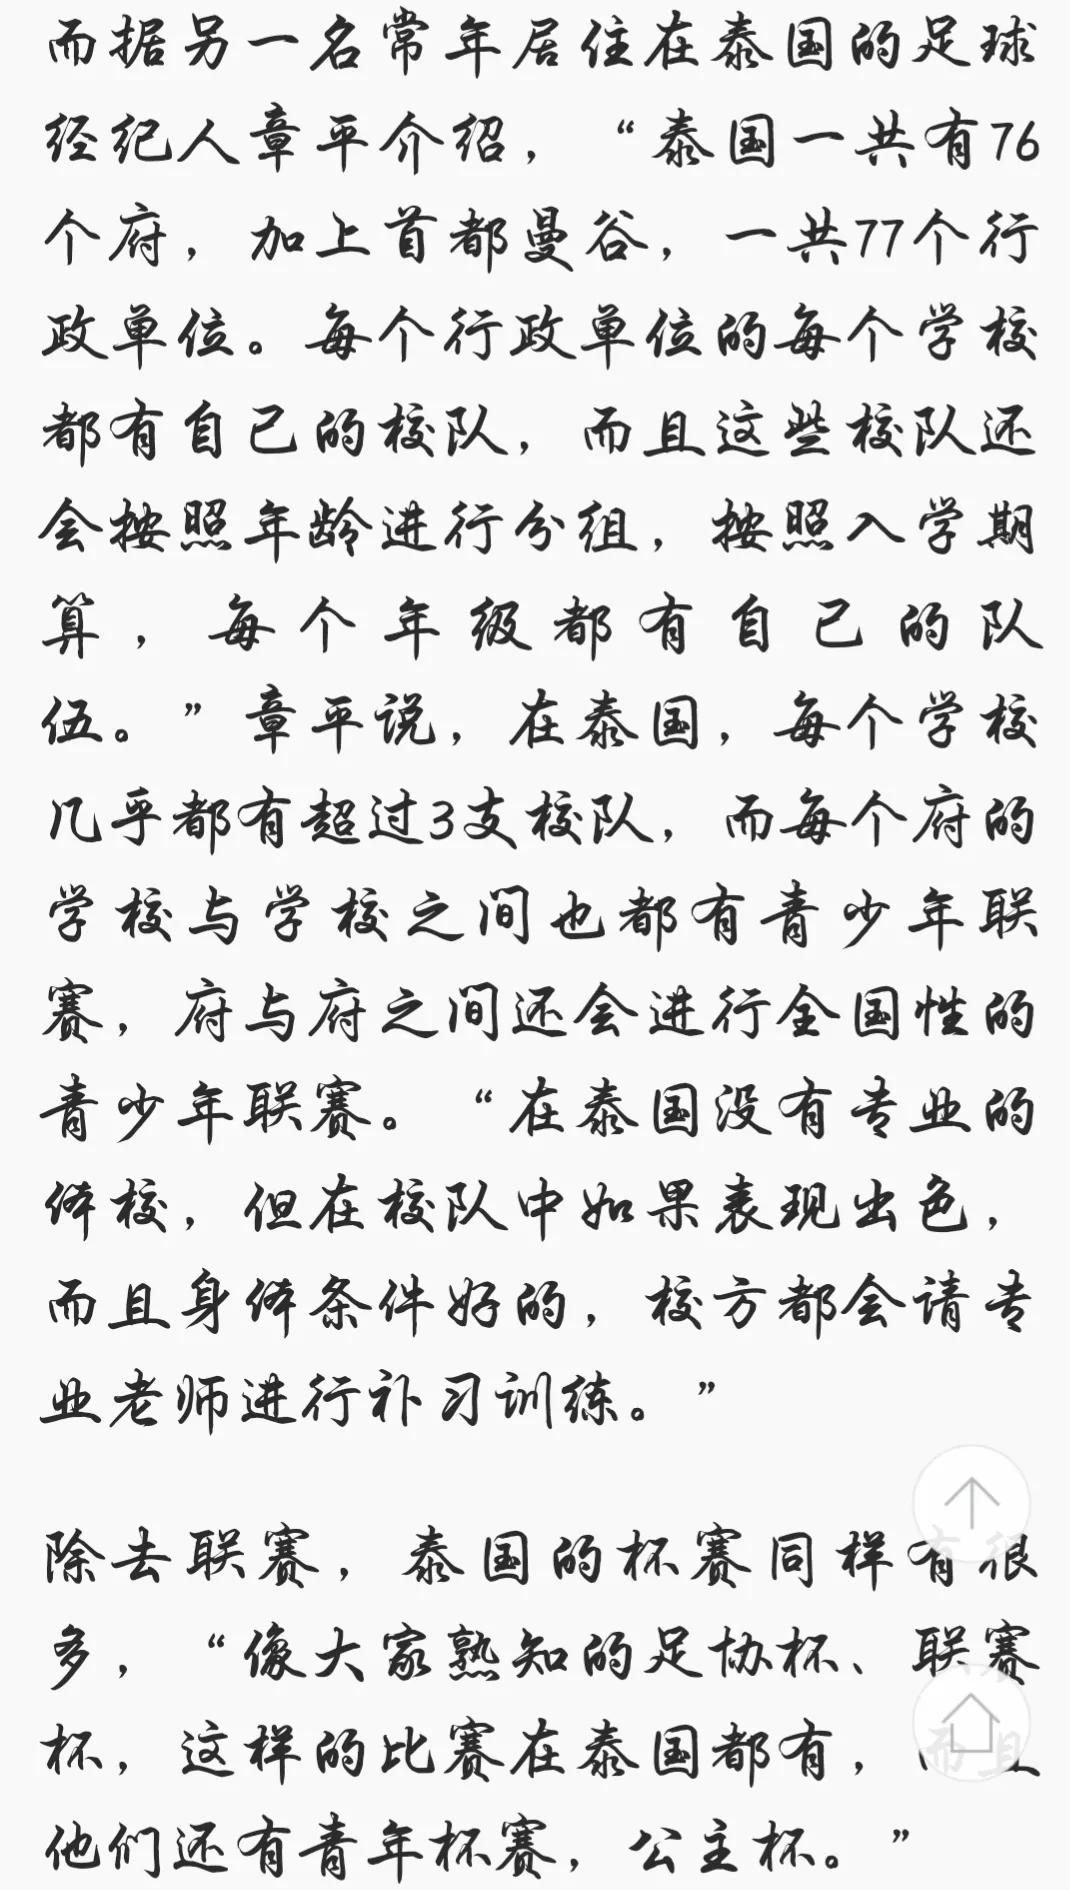 而据另一名常年居住在泰国的足球
经纪人章平介绍，“泰国一共有76
个府，加上首都曼谷，一共77个行
政单位。每个行政单位的每个学校
都有自己的校队，而且这些校队还
会按照年龄进行分组，按照入学期
算，每个年级都有自己的队
伍。”章平说，在泰国，每个学校
几乎都有超过3支校队，而每个府的
学校与学校之间也都有青少年联
赛，府与府之间还会进行全国性的
青少年联赛。“在泰国没有专业的
体校，但在校队中如果表现出色，
而且身体条件好的，校方都会请专
业老师进行补习训练。”
除去联赛，泰国的杯赛同样有很
多，“像大家熟知的足协杯、联赛
杯，这样的比赛在泰国都有，而且
他们还有青年杯赛，公主杯。”